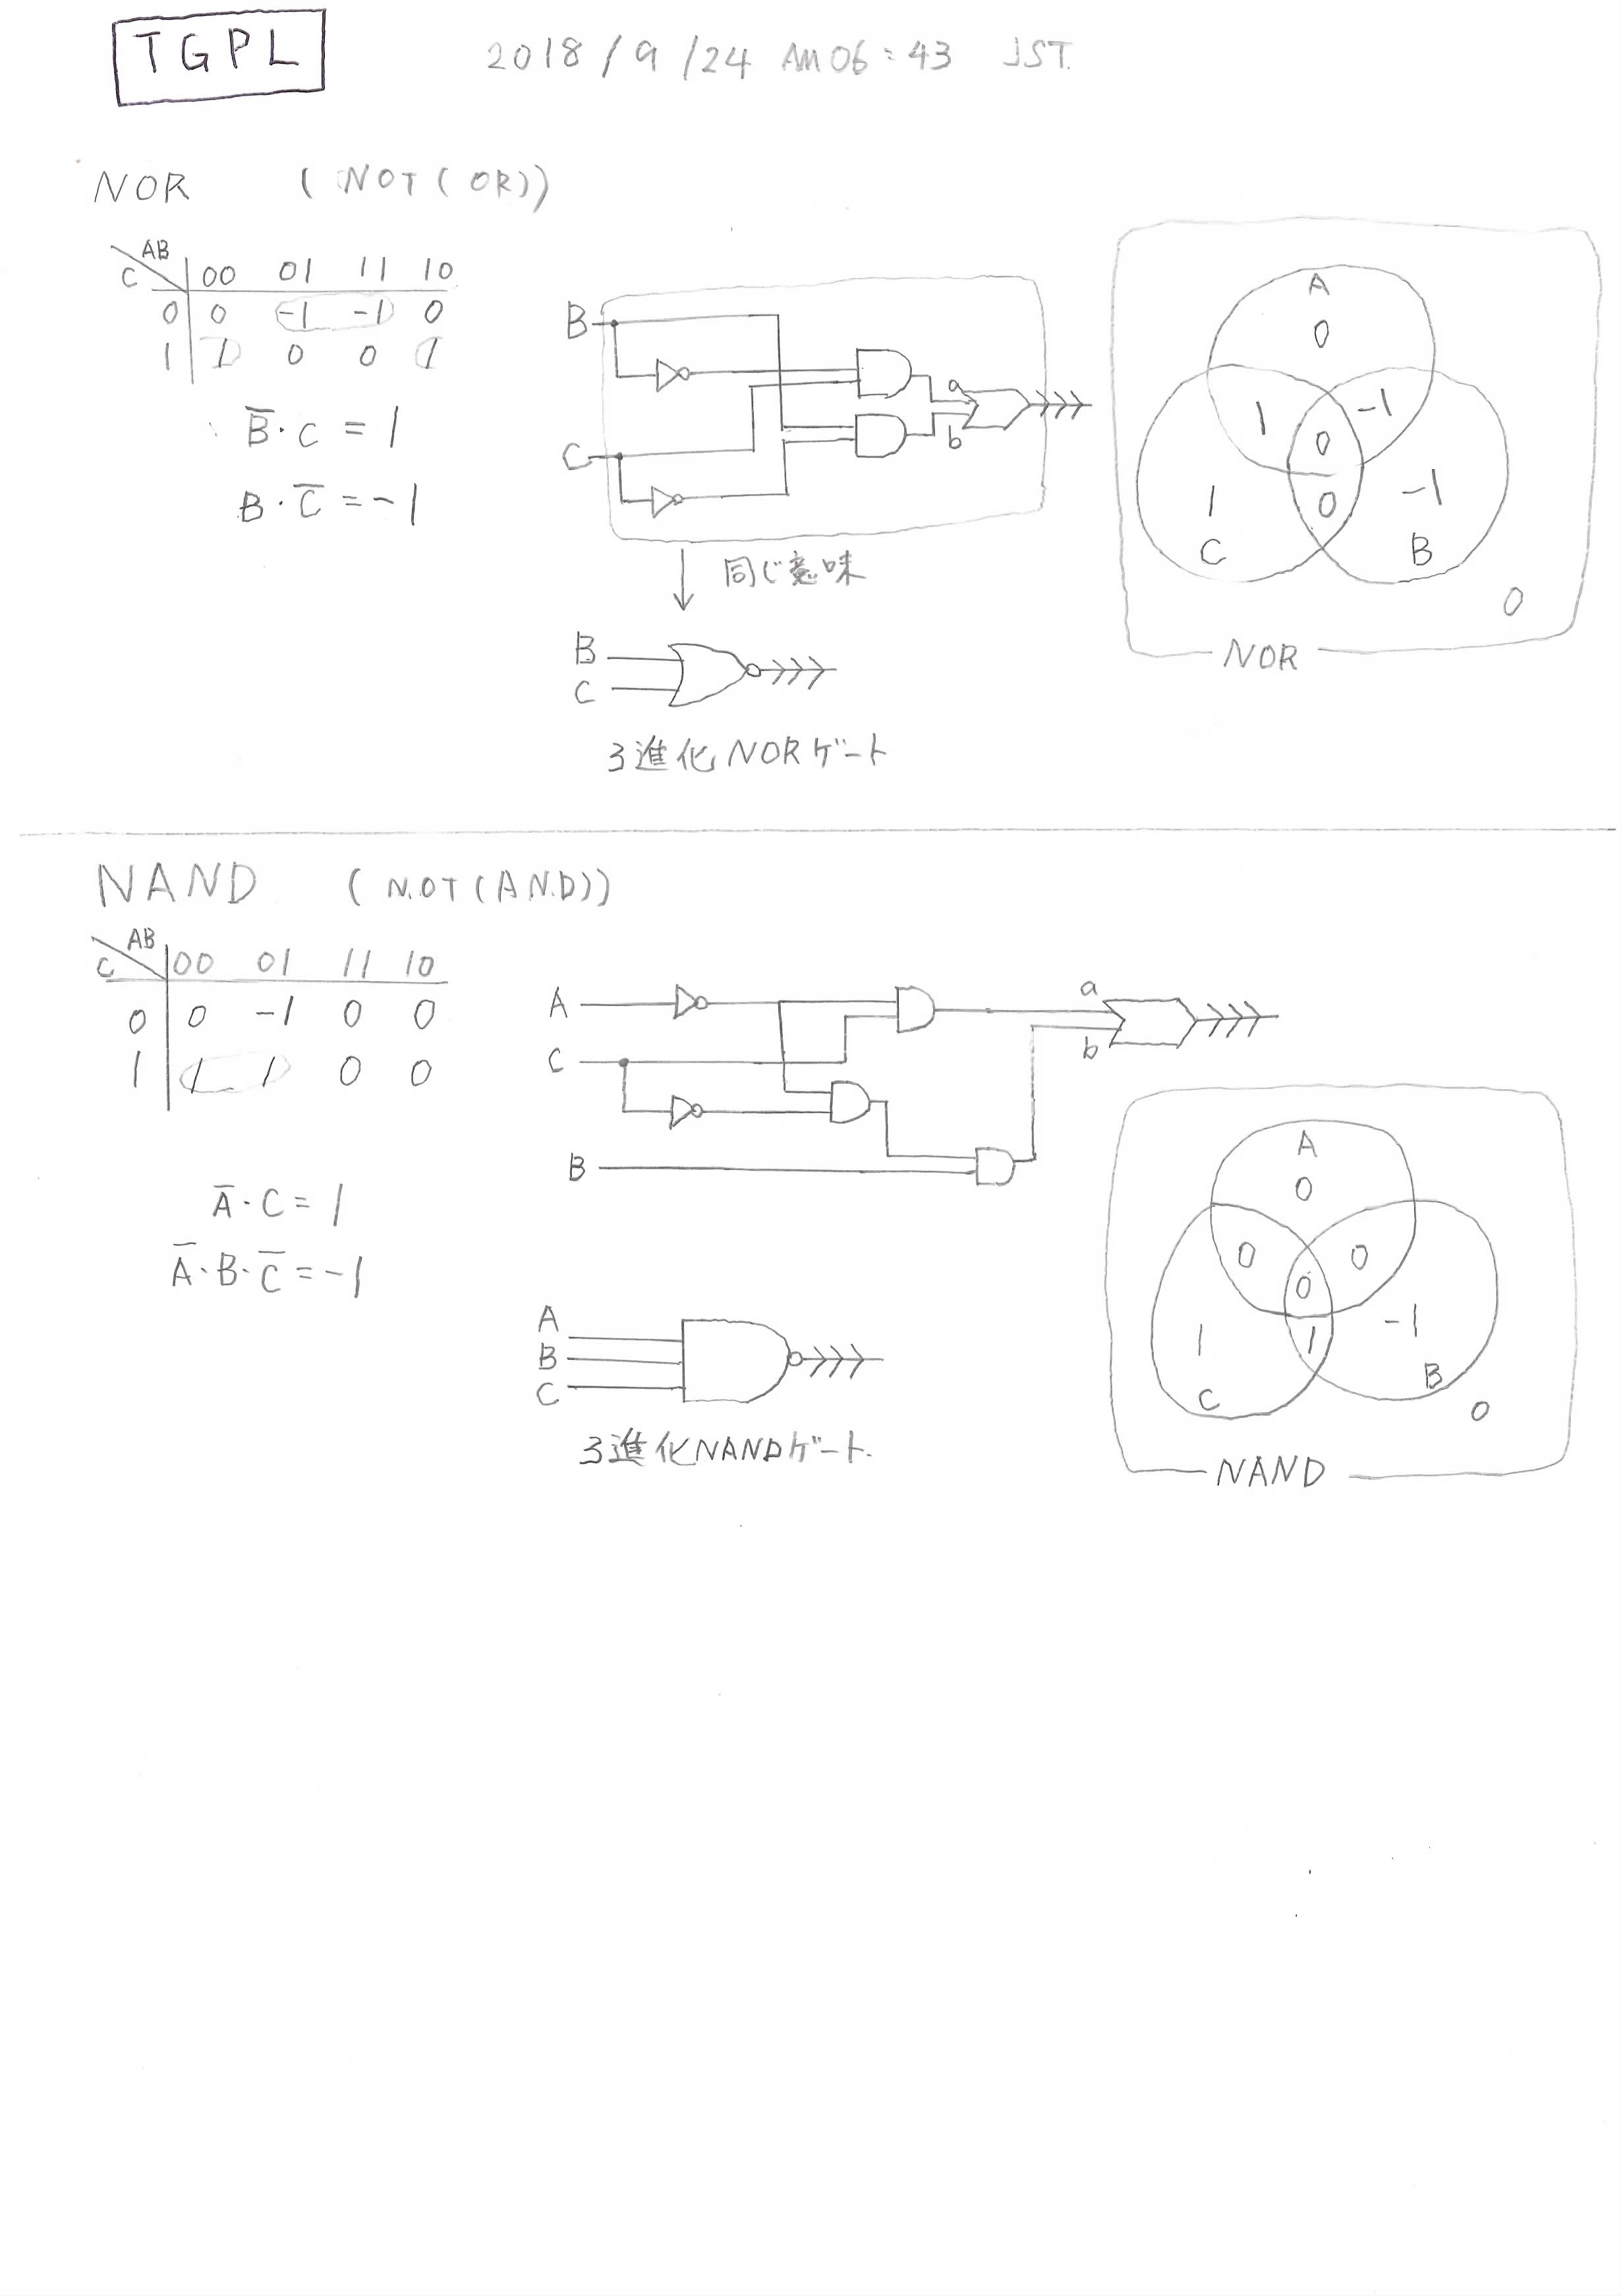 TGPL 2018/9/24 AM06:43 JST.
NOR (NOT(OR))
AB
C 00 01 11 10
0 0 -1 -1 0
1 1 0 0 1
B̅·C = 1
B·C̅ = -1
B
C
a
b
同じ意味
B
C
3進化NORゲート
A
0
1 -1
0
1 0 -1
C B
0
NOR
NAND (N.OT(AN.D))
AB
C 00 01 11 10
0 0 -1 0 0
1 1 1 0 0
A̅·C = 1
A̅·B·C̅ = -1
A
C
B
a
b
A
B
C
3進化NANDゲート.
A
0
0 0
0
1 1 -1
C B
0
NAND